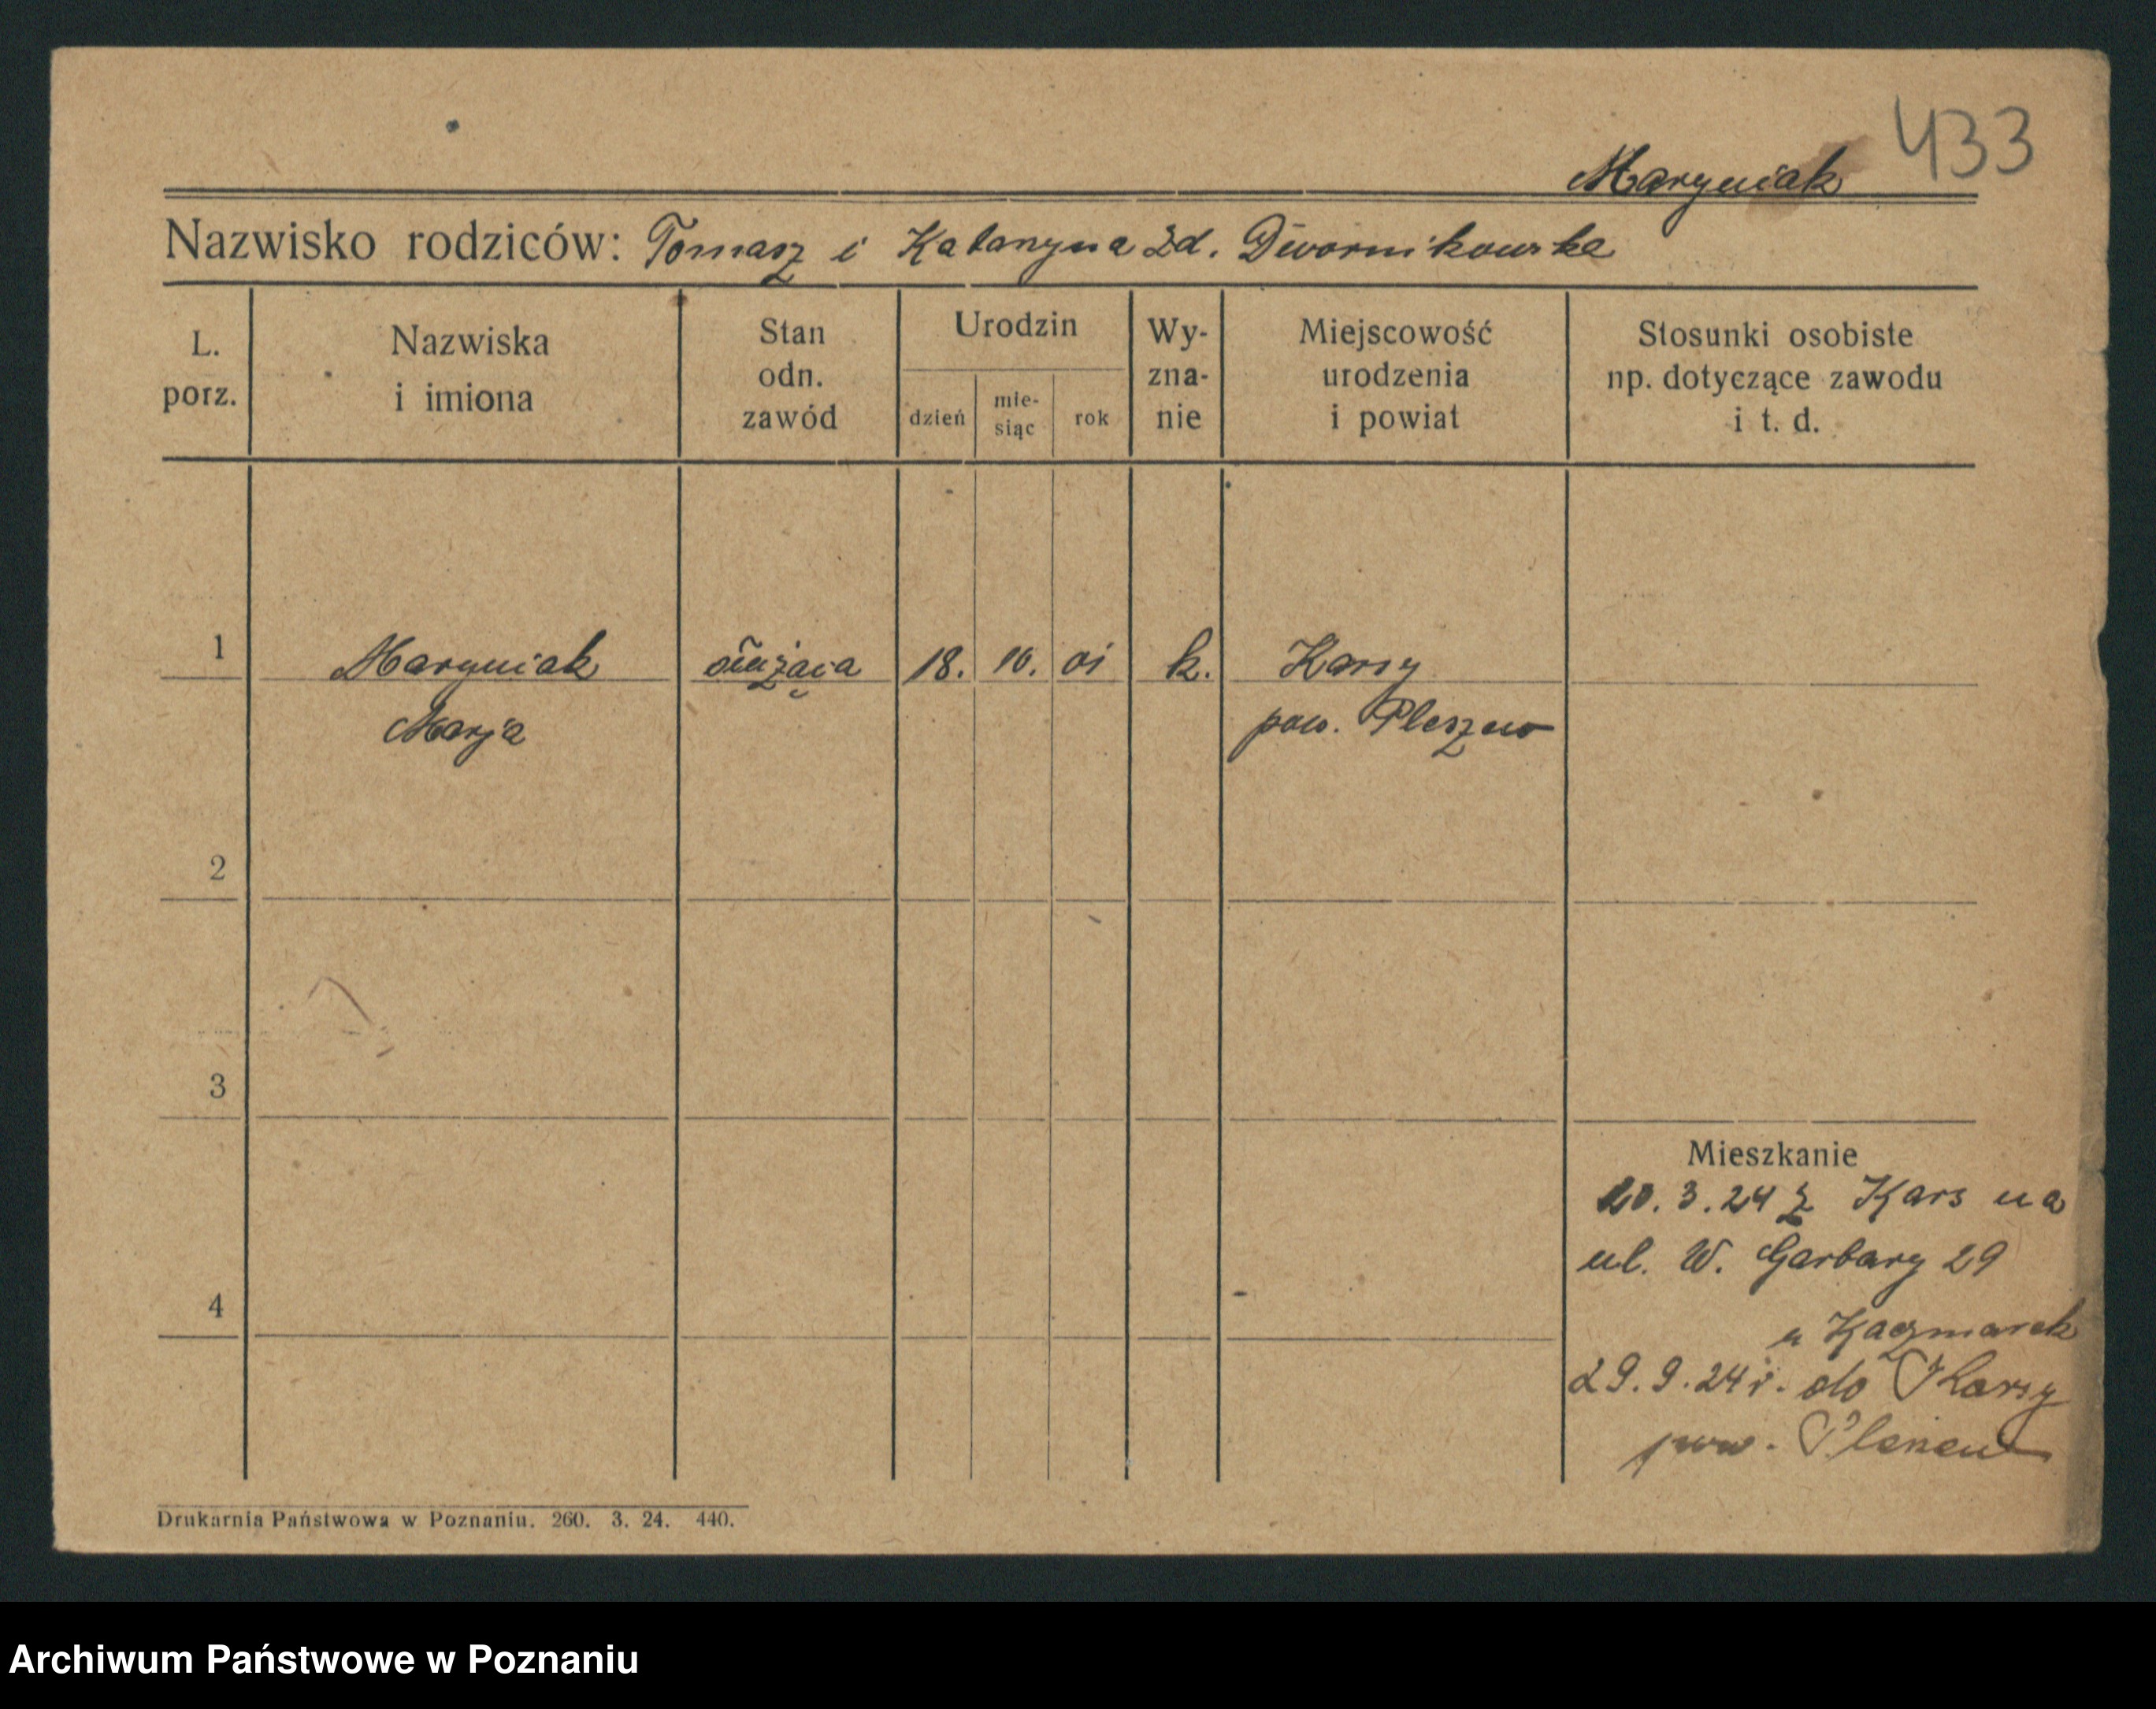 433
Maryniak
Nazwisko rodziców: Tomasz i Katarzyna zd. Dwornikowska
L. porz.
Nazwiska i imiona
Stan odn. zawód
Urodzin
dzień
mie-siąc
rok
Wy-zna-nie
Miejscowość urodzenia i powiat
Stosunki osobiste np. dotyczące zawodu i t. d.
1 Maryniak służąca 18. 10. 01 k. Karsy
Marja pow. Pleszew
2
3
Mieszkanie
20. 3. 24 z Kars na
ul. W. Garbary 29
4
u Kaczmarek
29. 9. 24 r. do Karsy
pow. Pleszew
Drukarnia Państwowa w Poznaniu. 260. 3. 24. 440.
Archiwum Państwowe w Poznaniu